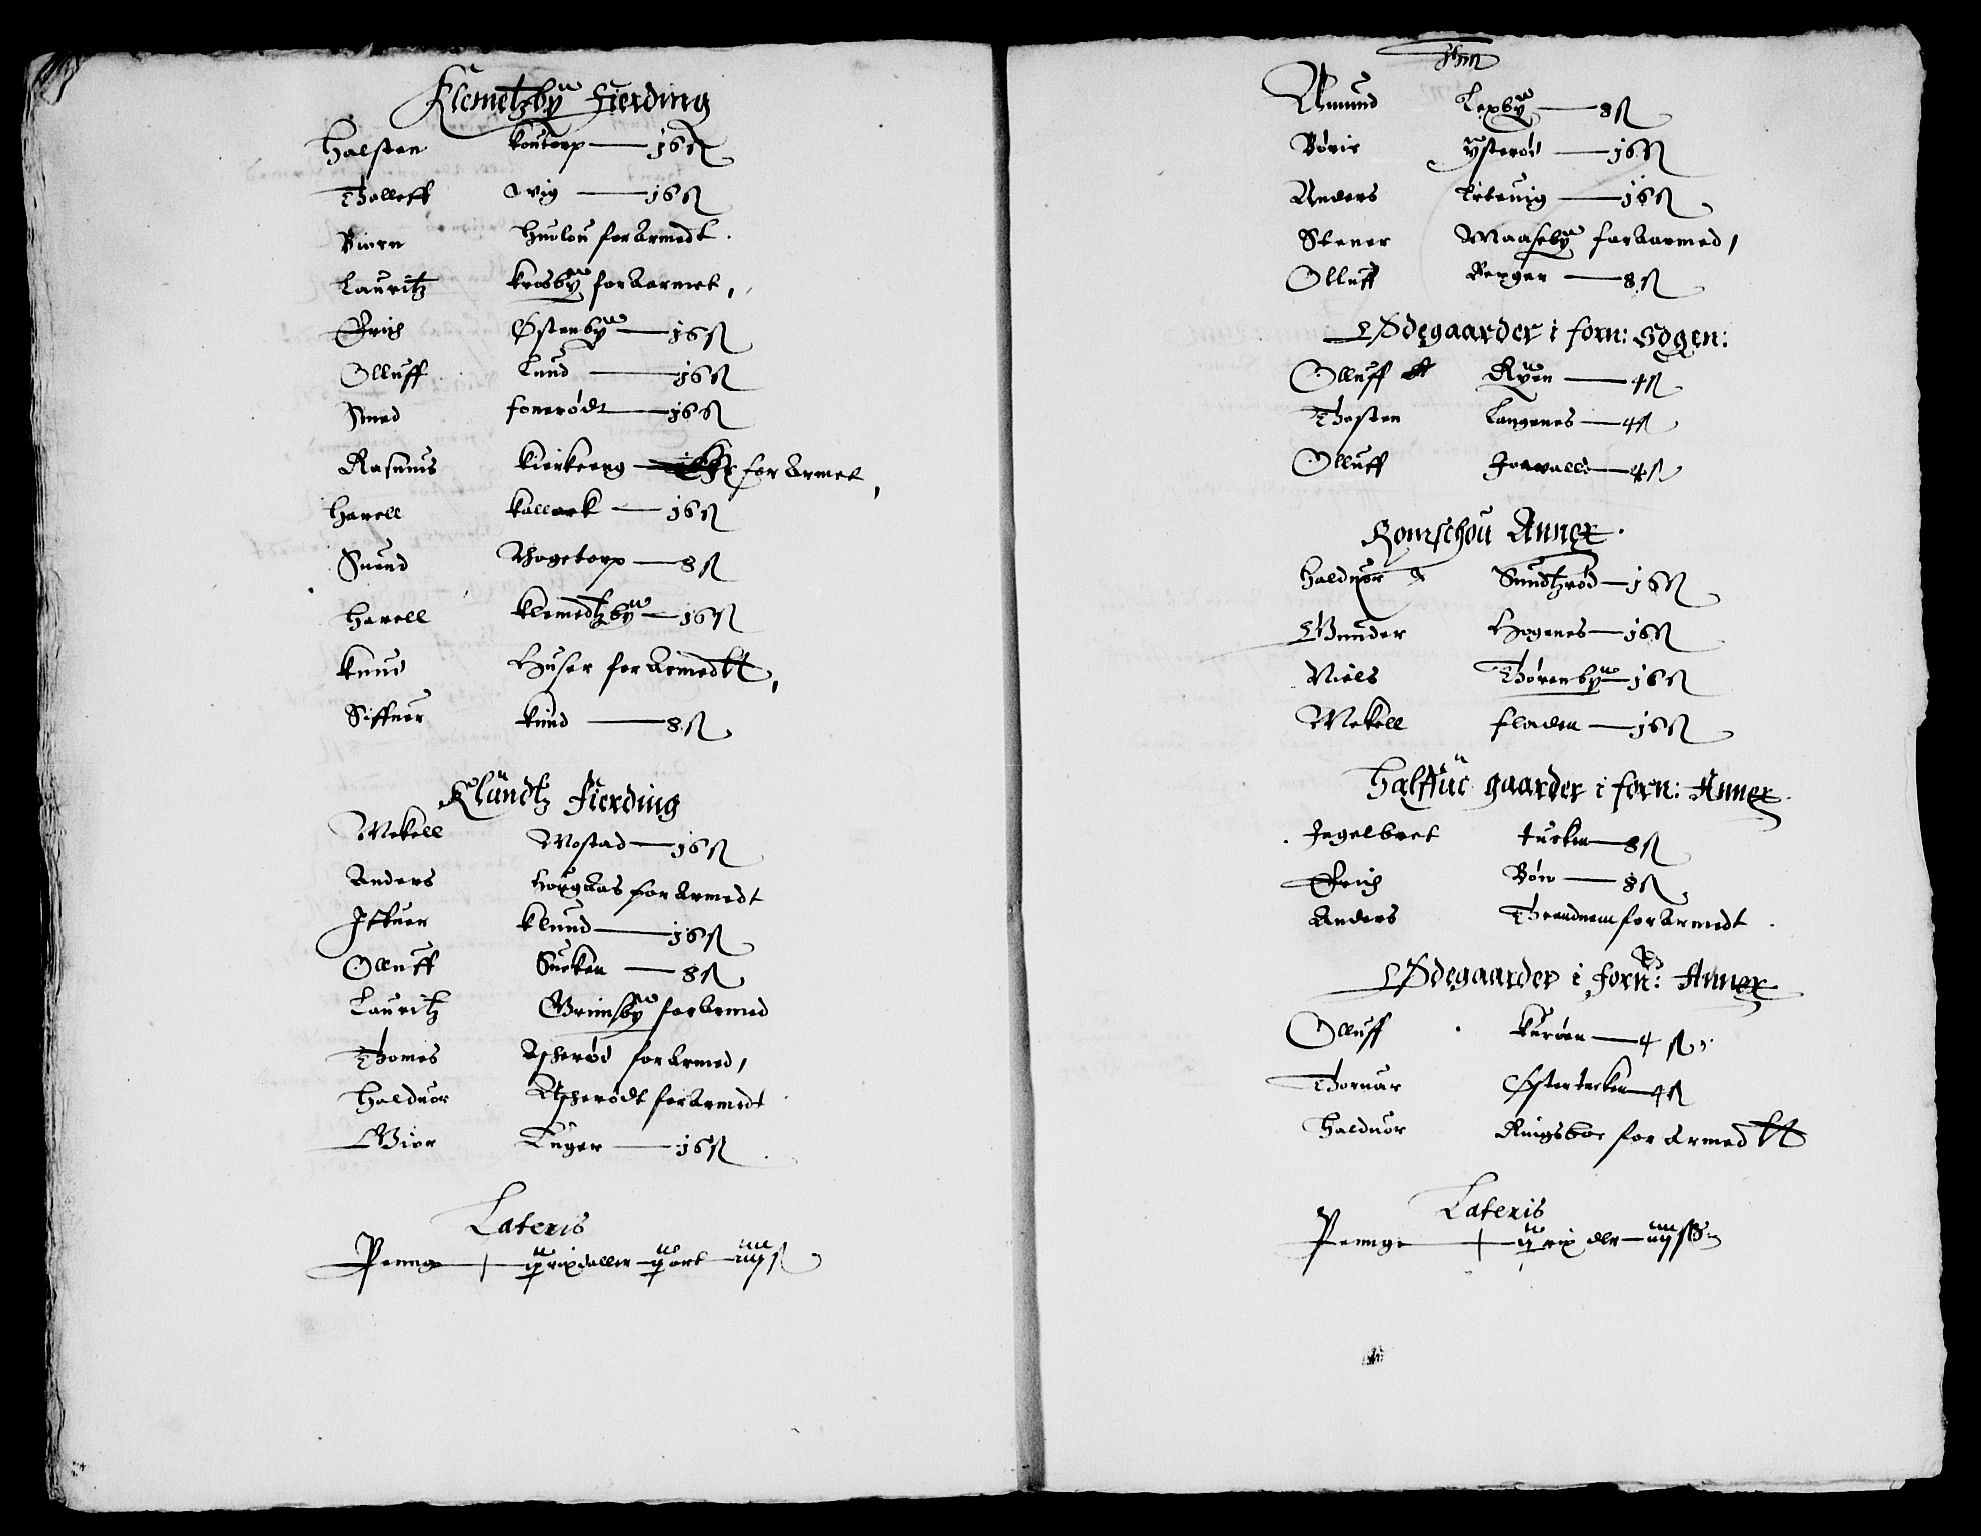 Klemetzby Fierding
Halsten Koutorp — 16 ß
Tholleff Wig — 16 ß
Biørn Huulou forarmedt.
Lauritz Krosby forarmet,
Erich Østenby — 16 ß
Olluff Lund — 16 ß
Amed fonerødt — 16 ß
Rasmus Kierkeeng — forarmet,
Harell Kallark — 16 ß
Suend Thogetorp — 8 ß
Harell Klemedtzby — 16 ß
Knud Huser forarmedtt,
Siffuer Kind — 8 ß
Klundtz Fierding
Mekell Mostad — 16 ß
Anders Hougaas forarmedt
Iffuer Klund — 16 ß
Olluff Sucken — 8 ß
Lauritz Grimsby forarmed
Thomes Asperød forarmed,
Halduor Asperødt forarmedt
Gier Luger — 16 ß
Lateris
Penng — + ij rixdaller — ij ort — iiij ß
Amund Lexby — 8 ß
Børis Ysterød — 16 ß
Anders Lirtuig — 16 ß
Stener Maaseby forarmed,
Olluff Berger — 8 ß
Ødegaarder i forn: Sogen:
Olluff Ryen — 4 ß
Thosten Langenes — 4 ß
Olluff Joruald — 4 ß
Romschou Annex.
Halduor Sundtzrød — 16 ß
Gunder Hogenes — 16 ß
Niels Thørenby — 16 ß
Mekell Fladen — 16 ß
Halffue gaarder i forn: Annex.
Ingelbret tucken — 8 ß
Erich Bøn — 8 ß
Anders Trandnem forarmedt.
Ødegaarder i forn: Annex
Olluff Kurøen — 4 ß
Thoruar Østertucken — 4 ß
Halduor Ringsboe forarmedtt
Lateris
Penng — + ij rix dlr — iiij ß